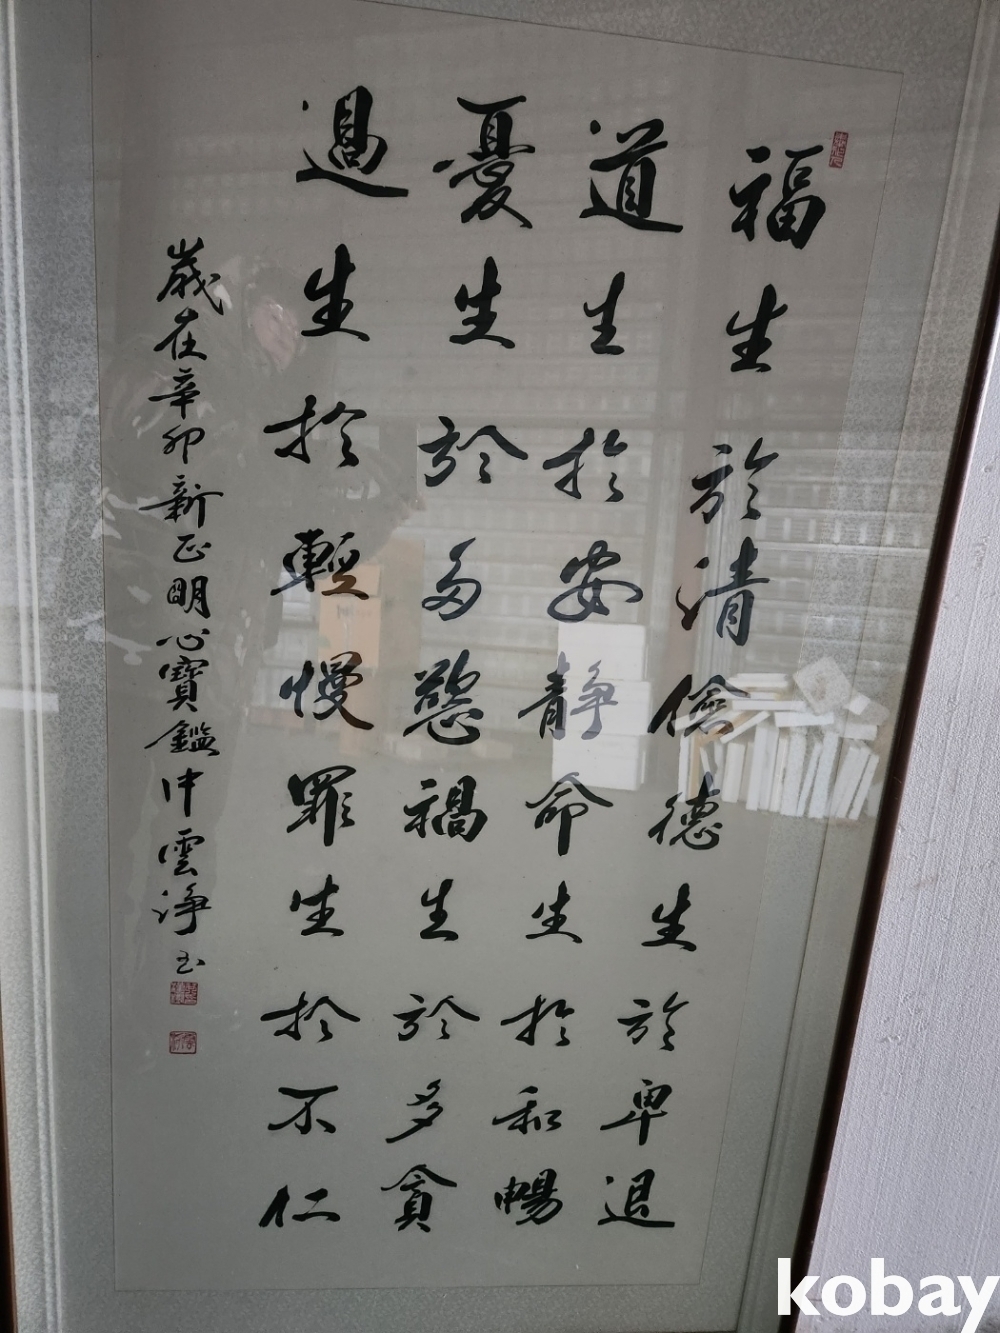 福生於清儉德生於卑退
道生於安静命生於和暢
憂生於多慾禍生於多貪
過生於輕慢罪生於不仁
歲在辛卯新正明心寶鑑中雲淨
kobay